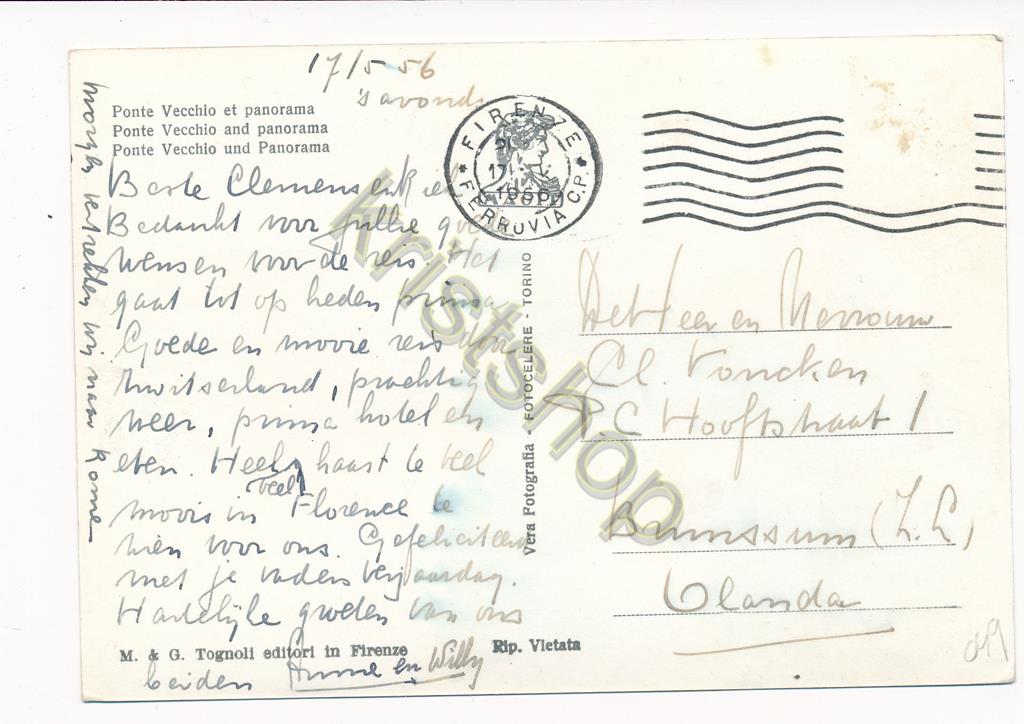 17/5 56
's avonds
Ponte Vecchio et panorama
Ponte Vecchio and panorama
Ponte Vecchio und Panorama
Beste Clemens en
Bedankt voor jullie goede
wensen voor de reis. Het
gaat tot op heden prima
Goede en mooie reis door
Zwitserland, prachtig
weer, prima hotel en
eten. Heel veel haast te veel
moois in Florence te
zien voor ons. Gefeliciteerd
met je vaders verjaardag.
Hartelijke groeten van ons
beiden Anne en Willy
morgen vertrekken wij naar Rome
M. & G. Tognoli editori in Firenze
Rip. Vietata
Vera Fotografia - FOTOCELERE - TORINO
FIRENZE
17
1956
FERROVIA C.P.
De Heer en Mevrouw
Cl. Voncken
P.C Hooftstraat 1
Brunssum (Z.L)
Olanda
049
kristshop